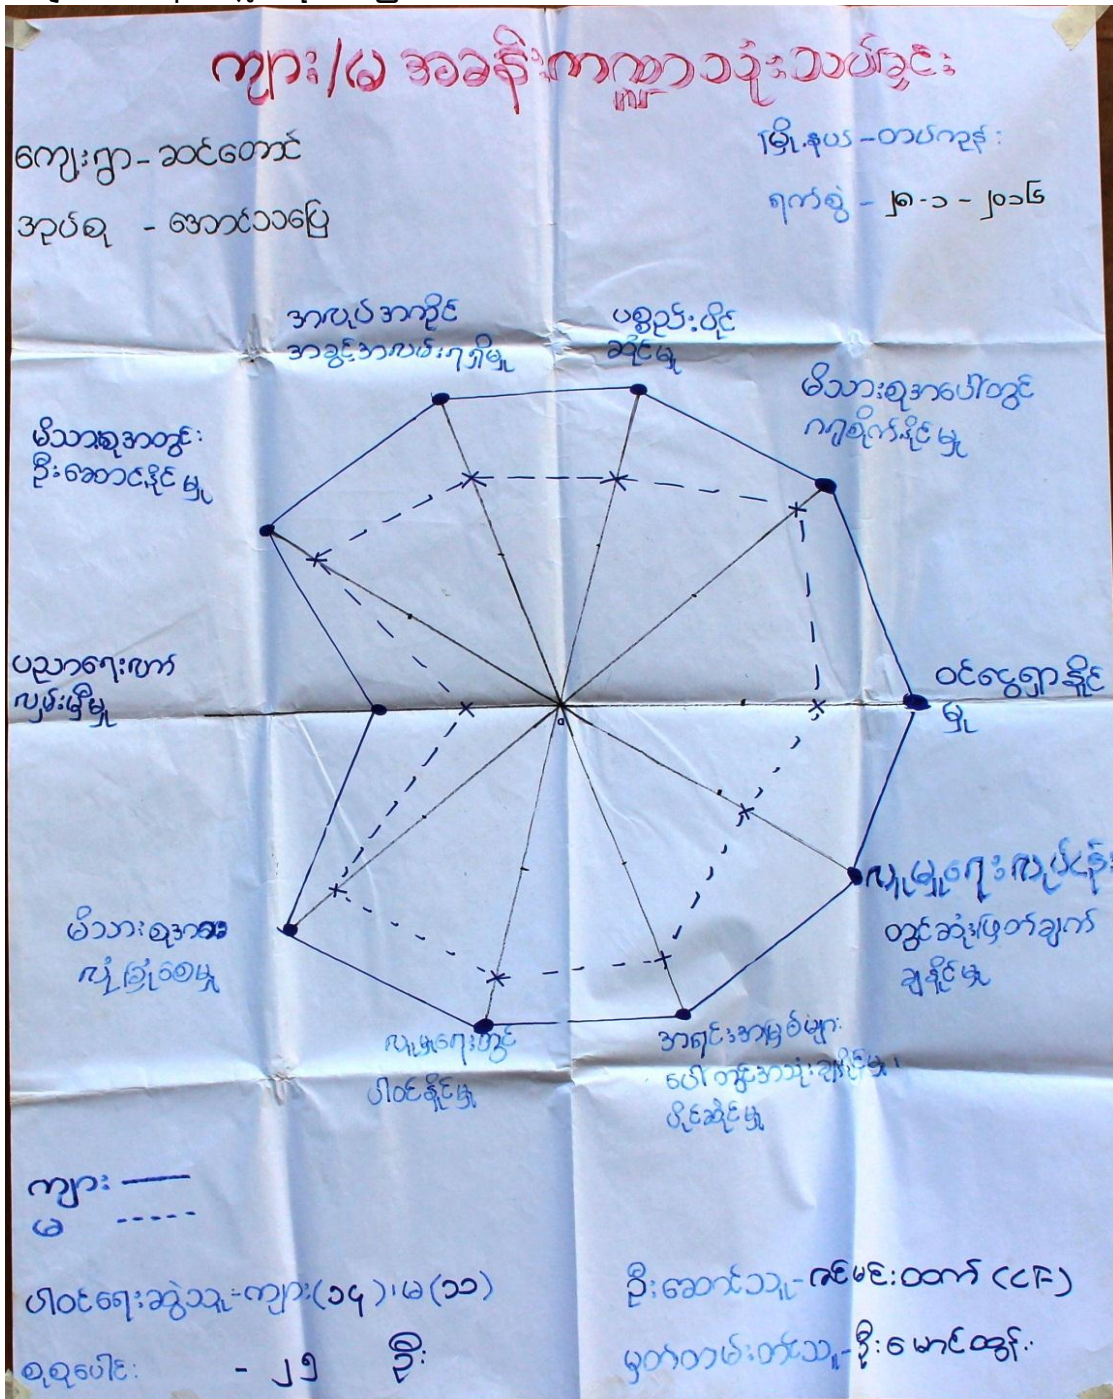 ကျား/မ အခန်းကဏ္ဍသုံးသပ်ခြင်း
ကျေးရွာ - ဆင်တောင်
မြို့နယ် - တပ်ကုန်း
အုပ်စု - အောင်သပြေ
ရက်စွဲ - ၂၈-၁-၂၀၁၆
အလုပ်အကိုင်
အခွင့်အလမ်းရရှိမှု
ပစ္စည်းပိုင်
ဆိုင်မှု
မိသားစုအပေါ်တွင်
ဂရုစိုက်နိုင်မှု
မိသားစုအတွင်း
ဦးဆောင်နိုင်မှု
ပညာရေးလက်
လှမ်းမှီမှု
ဝင်ငွေရှာနိုင်
မှု
လူမှုရေးလုပ်ငန်း
တွင်ဆုံးဖြတ်ချက်
ချနိုင်မှု
မိသားစုအား
လုံခြုံစေမှု
လူမှုရေးတွင်
ပါဝင်နိုင်မှု
အရင်းအမြစ်များ
ပေါ်တွင်အသုံးချနိုင်မှု၊
ပိုင်ဆိုင်မှု
ကျား
မ
ပါဝင်ရေးဆွဲသူ - ကျား(၁၄)၊ မ(၁၁)
စုစုပေါင်း - ၂၅ ဦး
ဦးဆောင်သူ - ဇင်မင်းထက် (CF)
မှတ်တမ်းတင်သူ - ဦးမောင်ထွန်း